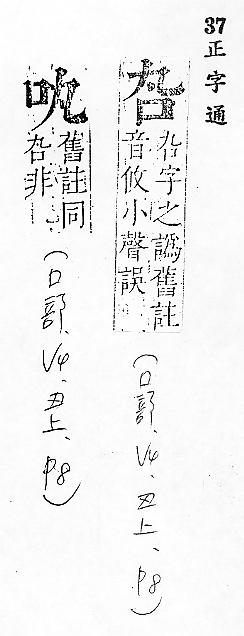 37 正字通
字之譌舊註
音攸小聲誤
(口部、V4、丑上、P8)
舊註同
非
(口部、V4、丑上、P8)